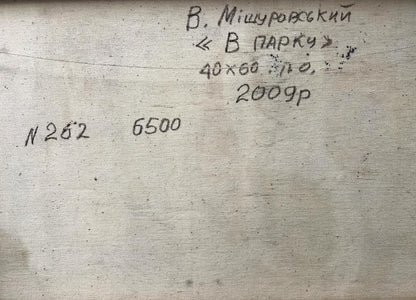 В. Мішуровський
« В ПАРКУ »
40×60. п.о.
2009р
N 262 6500